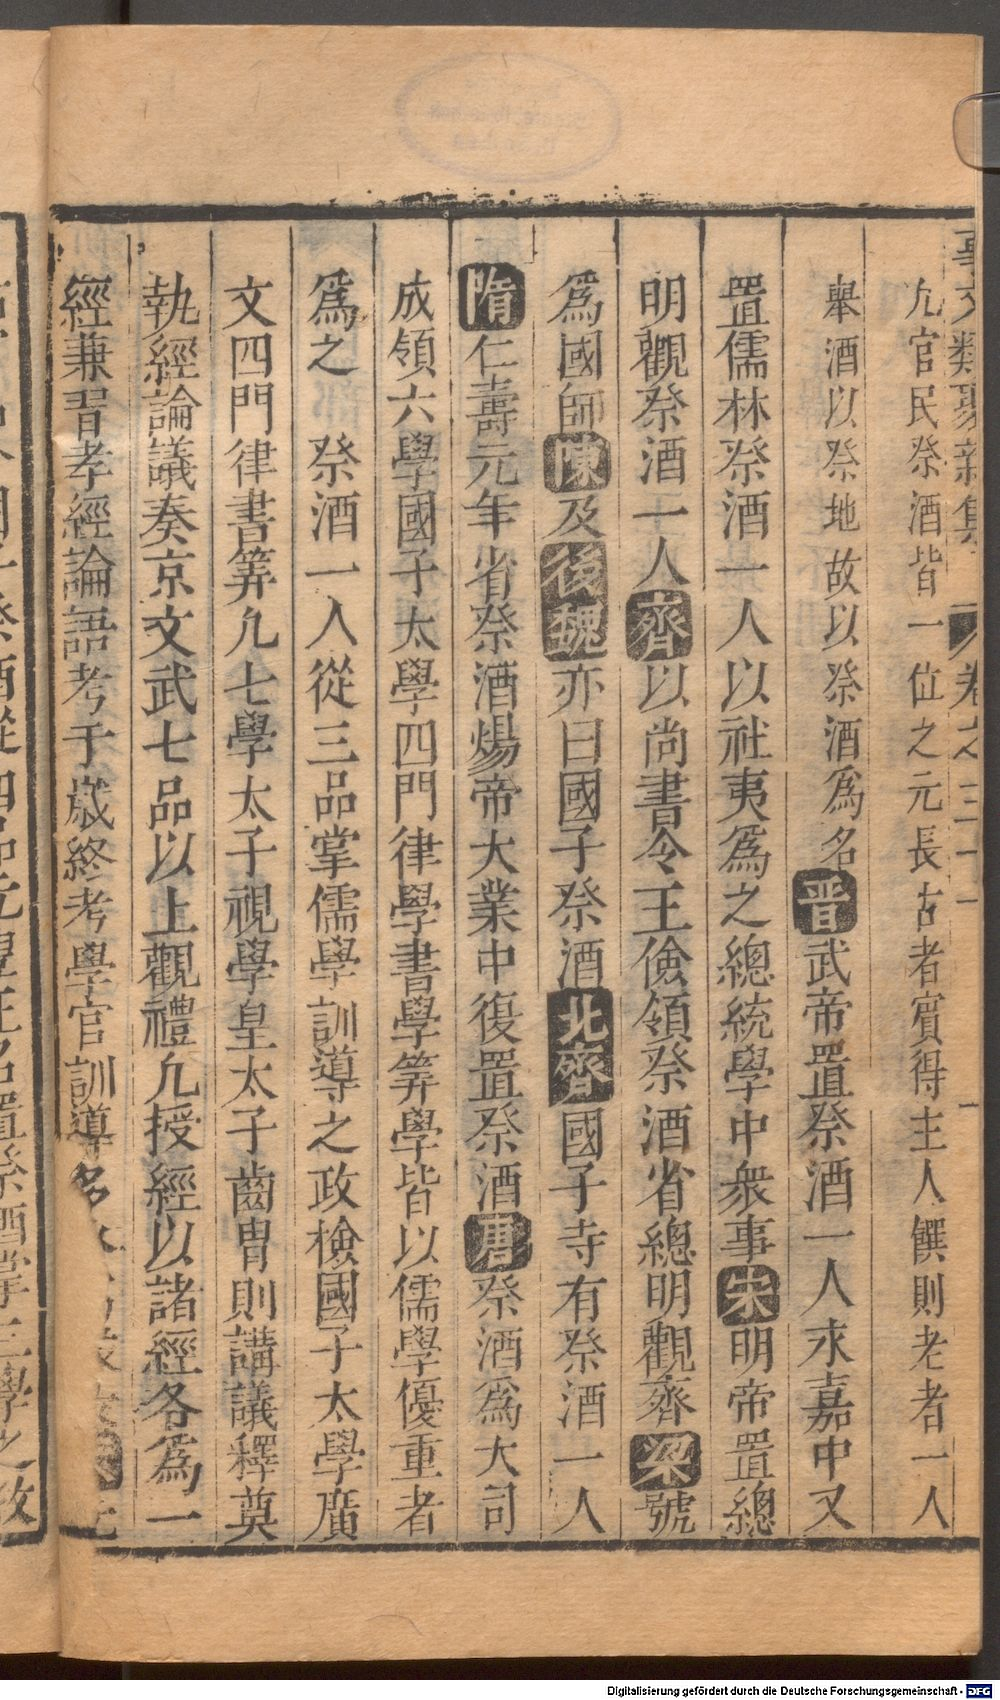 事文類聚新集 卷之三十一
凢官民祭酒皆一位之元長古者賓得主人饌則老者一人
舉酒以祭地故以祭酒爲名晋武帝置祭酒一人永嘉中又
置儒林祭酒一人以社夷爲之總統學中衆事宋明帝置總
明觀祭酒一人齊以尚書令王儉領祭酒省總明觀齊梁號
爲國師陳及後魏亦曰國子祭酒北齊國子寺有祭酒一人
隋仁壽元年省祭酒煬帝大業中復置祭酒唐祭酒爲大司
成領六學國子太學四門律學書學筭學皆以儒學優重者
爲之 祭酒一人從三品掌儒學訓導之政檢國子太學廣
文四門律書筭凢七學太子視學皇太子齒胄則講議釋奠
執經論議奏京文武七品以上觀禮凢授經以諸經各爲一
經兼習孝經論語考于歲終考學官訓導多
祭酒從四品元豐正名置祭酒掌三學之政
Digitalisierung gefördert durch die Deutsche Forschungsgemeinschaft - DFG